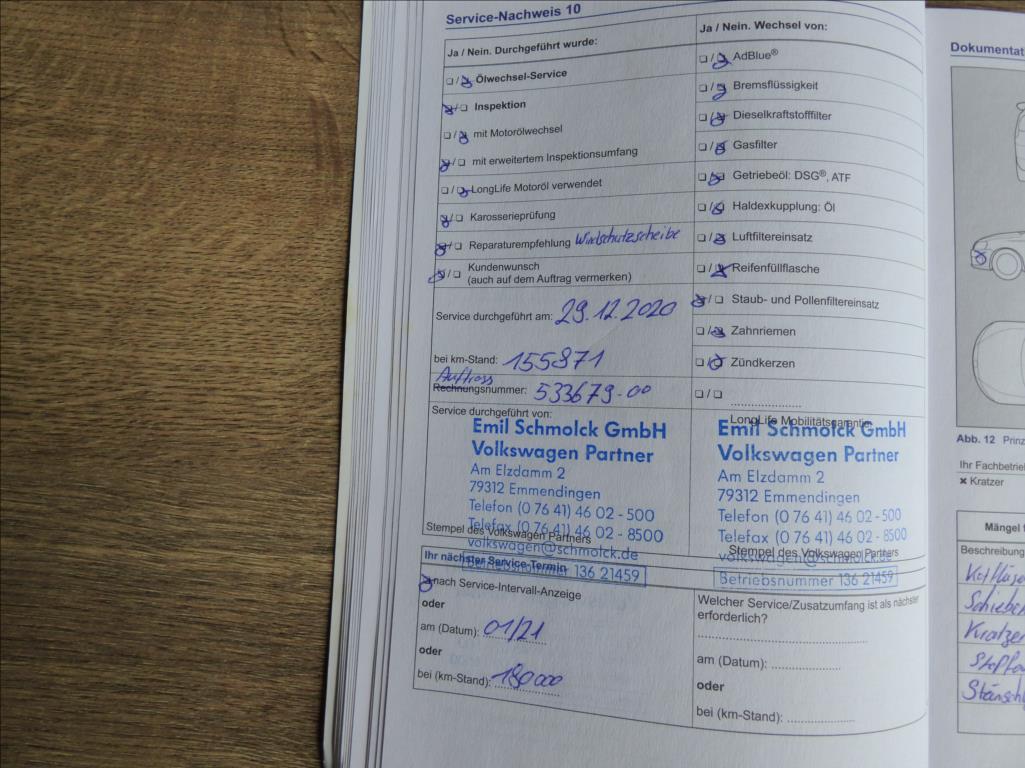 Service-Nachweis 10
Ja / Nein. Durchgeführt wurde:
❏ / ❏ Ölwechsel-Service
❏ / ❏ Inspektion
❏ / ❏ mit Motorölwechsel
❏ / ❏ mit erweitertem Inspektionsumfang
❏ / ❏ LongLife Motoröl verwendet
❏ / ❏ Karosserieprüfung
❏ / ❏ Reparaturempfehlung Windschutzscheibe
❏ / ❏ Kundenwunsch
(auch auf dem Auftrag vermerken)
Service durchgeführt am: 29.12.2020
bei km-Stand: 155871
Rechnungsnummer: 533679-00
Service durchgeführt von:
Emil Schmolck GmbH
Volkswagen Partner
Am Elzdamm 2
79312 Emmendingen
Telefon (0 76 41) 46 02 - 500
Telefax (0 76 41) 46 02 - 8500
Stempel des Volkswagen Partners
volkswagen@schmolck.de
Betriebsnummer 136 21459
Ihr nächster Service-Termin
nach Service-Intervall-Anzeige
oder
am (Datum): 01/21
oder
bei (km-Stand): 180000
Ja / Nein. Wechsel von:
❏ / ❏ AdBlue®
❏ / ❏ Bremsflüssigkeit
❏ / ❏ Dieselkraftstofffilter
❏ / ❏ Gasfilter
❏ / ❏ Getriebeöl: DSG®, ATF
❏ / ❏ Haldexkupplung: Öl
❏ / ❏ Luftfiltereinsatz
❏ / ❏ Reifenfüllflasche
❏ / ❏ Staub- und Pollenfiltereinsatz
❏ / ❏ Zahnriemen
❏ / ❏ Zündkerzen
❏ / ❏
LongLife Mobilitätsgarantie
Emil Schmolck GmbH
Volkswagen Partner
Am Elzdamm 2
79312 Emmendingen
Telefon (0 76 41) 46 02 - 500
Telefax (0 76 41) 46 02 - 8500
Stempel des Volkswagen Partners
volkswagen@schmolck.de
Betriebsnummer 136 21459
Welcher Service/Zusatzumfang ist als nächster
erforderlich?
am (Datum):
oder
bei (km-Stand):
Dokumentat
Abb. 12 Prinz
Ihr Fachbetrie
✖ Kratzer
Mängel
Beschreibung
Kratzer